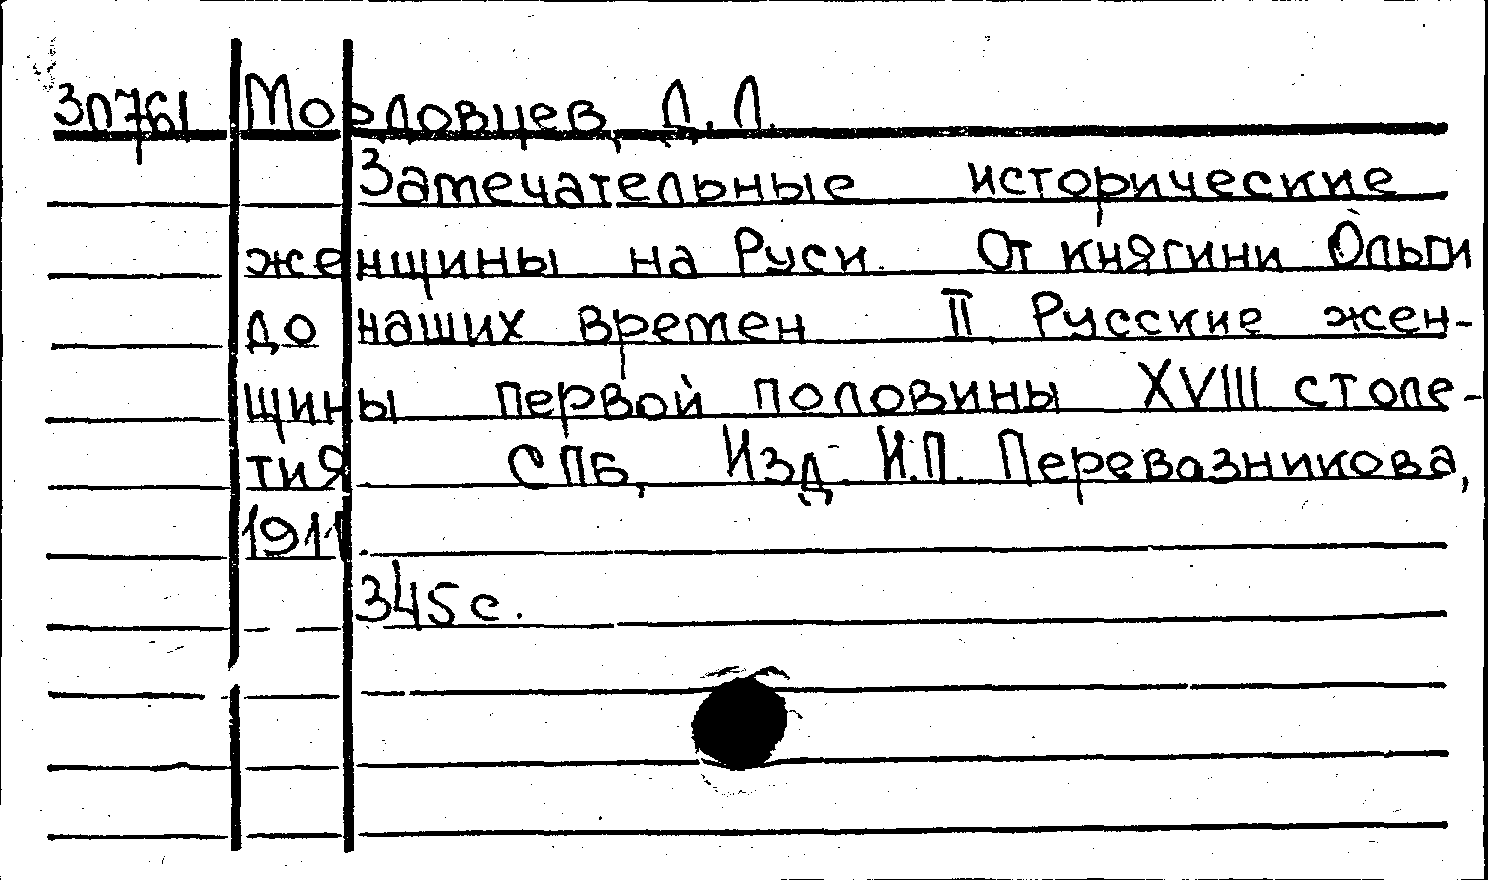 30761 Мордовцев, Д. Л.
Замечательные исторические
женщины на Руси. От княгини Ольги
до наших времен II Русские жен-
щины первой половины XVIII столе-
тия СПБ, Изд. И.П. Перевазникова,
1911
345 с.